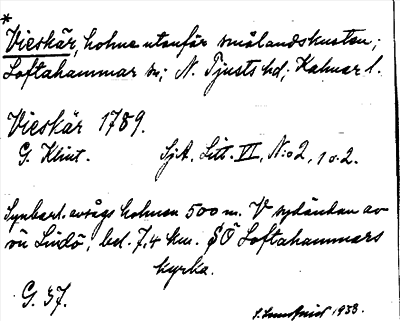 *
Vieskär, holme utanför smålandskusten;
Loftahammar sn; N. Tjusts hd; Kalmar l.
Vieskär 1789.
G. Klint. SjA. Litt. VI, N:o 2, 1 o. 2.
Synbarl. avsågs holmen 500 m. V sydändan av
ön Lindö, bel. 7,4 km. SÖ Loftahammars
kyrka.
G. 37.
1938.